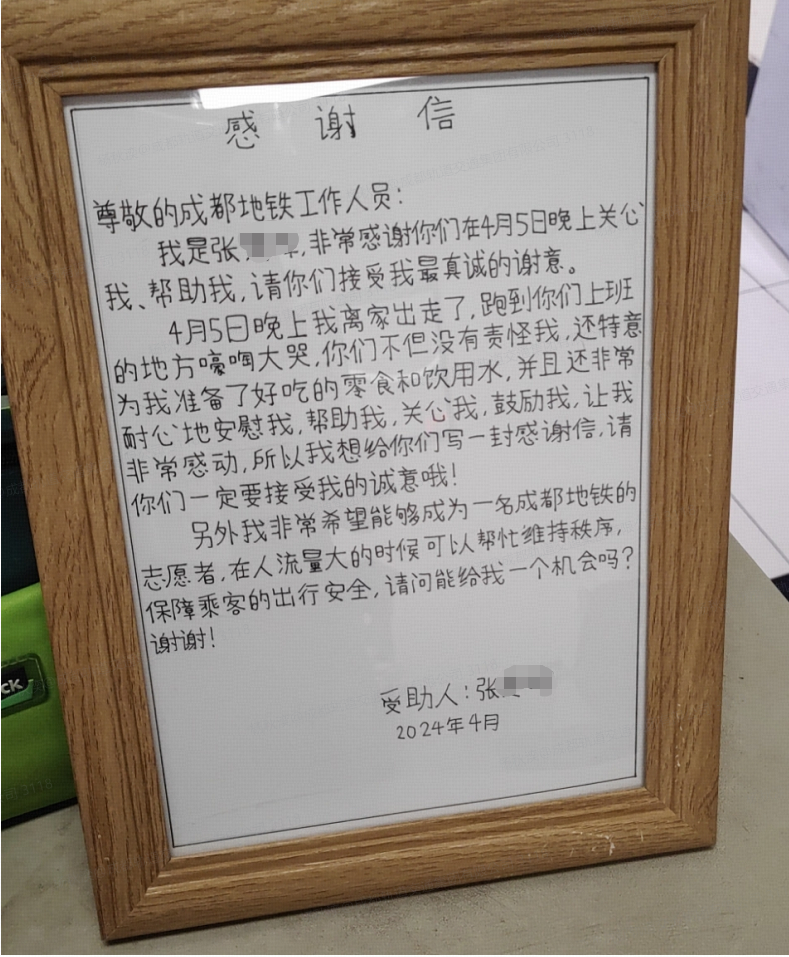 感 谢 信
尊敬的成都地铁工作人员：
我是张 ，非常感谢你们在4月5日晚上关心
我、帮助我，请你们接受我最真诚的谢意。
4月5日晚上我离家出走了，跑到你们上班
的地方嚎啕大哭，你们不但没有责怪我，还特意
为我准备了好吃的零食和饮用水，并且还非常
耐心地安慰我，帮助我，关心我，鼓励我，让我
非常感动，所以我想给你们写一封感谢信，请
你们一定要接受我的诚意哦！
另外我非常希望能够成为一名成都地铁的
志愿者，在人流量大的时候可以帮忙维持秩序，
保障乘客的出行安全，请问能给我一个机会吗？
谢谢！
受助人：张
2024年4月
ck